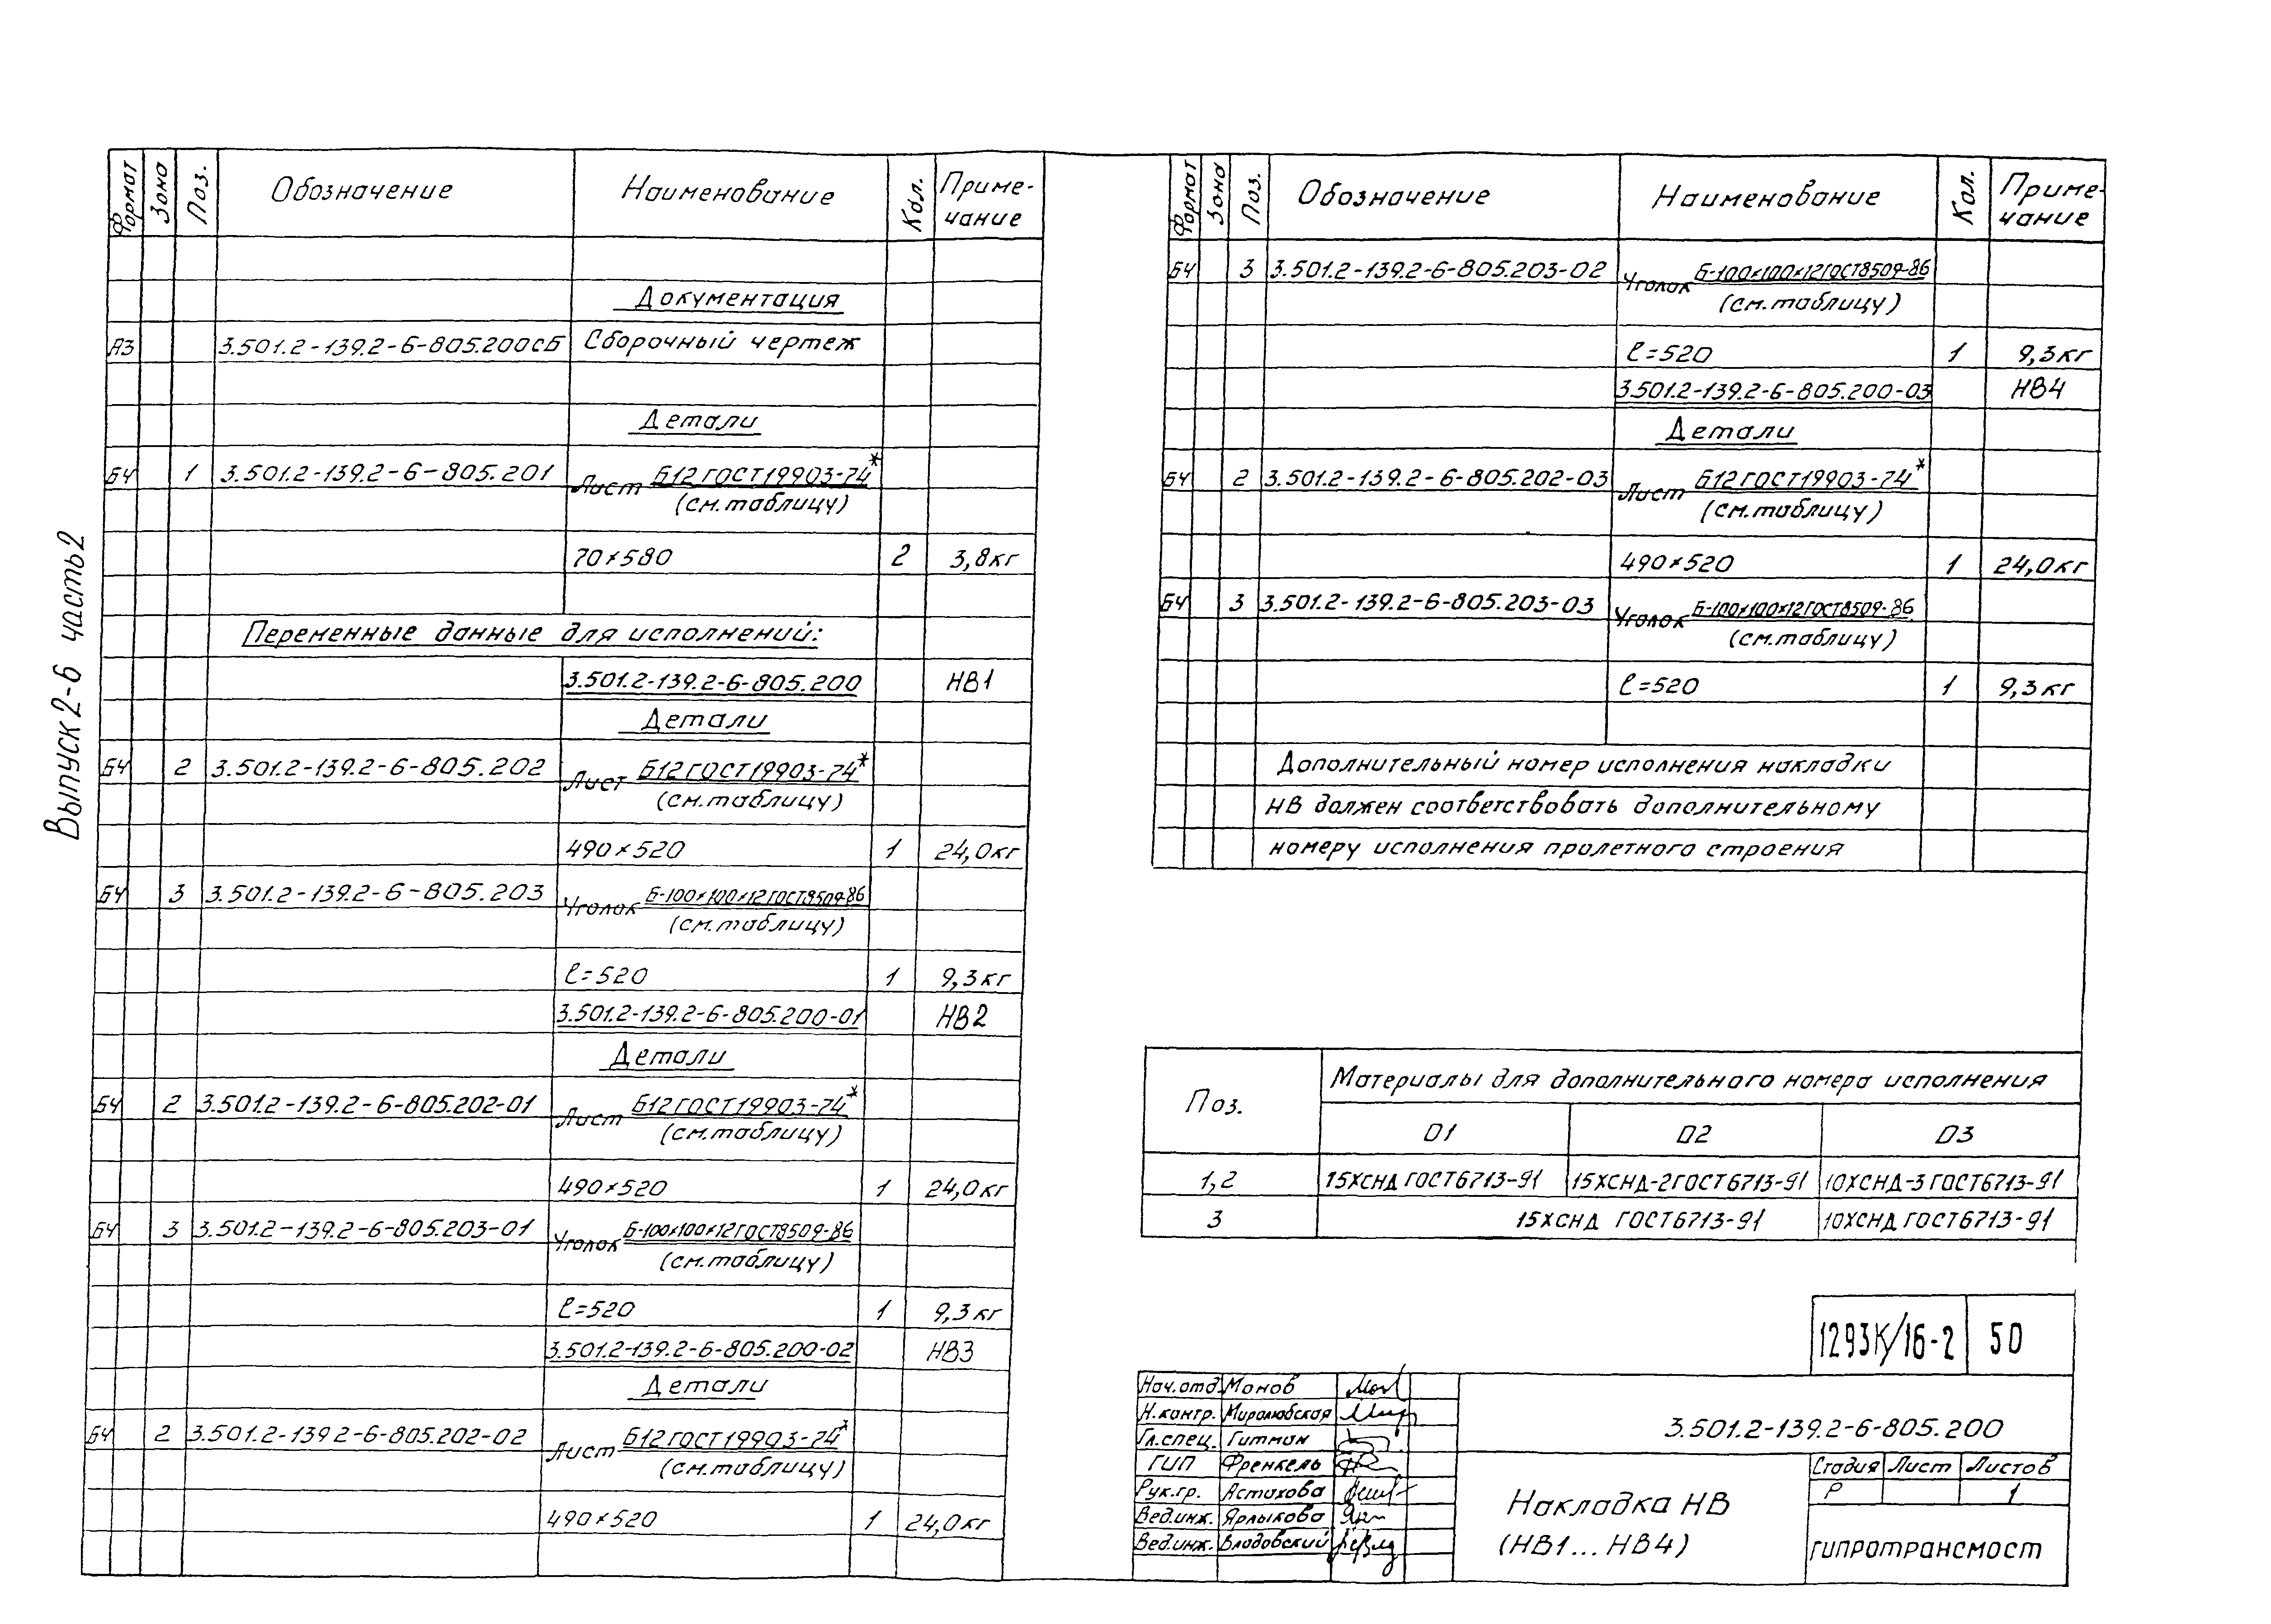 Выпуск 2-6 часть 2
Формат Зона Поз. Обозначение Наименование Кол. Приме-
чание
Документация
А3 3.501.2-139.2-6-805.200СБ Сборочный чертеж
Детали
БЧ 1 3.501.2-139.2-6-805.201 Лист Б12 ГОСТ 19903-74*
(см.таблицу)
70×580 2 3,8кг
Переменные данные для исполнений:
3.501.2-139.2-6-805.200 НВ1
Детали
БЧ 2 3.501.2-139.2-6-805.202 Лист Б12 ГОСТ 19903-74*
(см.таблицу)
490×520 1 24,0кг
БЧ 3 3.501.2-139.2-6-805.203 Уголок Б-100×100×12 ГОСТ 8509-86
(см.таблицу)
ℓ=520 1 9,3кг
3.501.2-139.2-6-805.200-01 НВ2
Детали
БЧ 2 3.501.2-139.2-6-805.202-01 Лист Б12 ГОСТ 19903-74*
(см.таблицу)
490×520 1 24,0кг
БЧ 3 3.501.2-139.2-6-805.203-01 Уголок Б-100×100×12 ГОСТ 8509-86
(см.таблицу)
ℓ=520 1 9,3кг
3.501.2-139.2-6-805.200-02 НВ3
Детали
БЧ 2 3.501.2-139 2-6-805.202-02 Лист Б12 ГОСТ 19903-74*
(см.таблицу)
490×520 1 24,0кг
Формат Зона Поз. Обозначение Наименование Кол. Приме-
чание
БЧ 3 3.501.2-139.2-6-805.203-02 Уголок Б-100×100×12 ГОСТ 8509-86
(см.таблицу)
ℓ=520 1 9,3кг
3.501.2-139.2-6-805.200-03 НВ4
Детали
БЧ 2 3.501.2-139.2-6-805.202-03 Лист Б12 ГОСТ 19903-74*
(см.таблицу)
490×520 1 24,0кг
БЧ 3 3.501.2-139.2-6-805.203-03 Уголок Б-100×100×12 ГОСТ 8509-86
(см.таблицу)
ℓ=520 1 9,3кг
Дополнительный номер исполнения накладки
НВ должен соответствовать дополнительному
номеру исполнения пролетного строения
Поз. Материалы для дополнительного номера исполнения
01 02 03
1,2 15ХСНД ГОСТ 6713-91 15ХСНД-2 ГОСТ 6713-91 10ХСНД-3 ГОСТ 6713-91
3 15ХСНД ГОСТ 6713-91 10ХСНД ГОСТ 6713-91
1293К/16-2 50
Нач.отд. Монов
Н.контр. Миролюбская
Гл.спец. Гитман
ГИП Френкель
Рук.гр. Астахова
Вед.инж. Ярлыкова
Вед.инж. Владовский
3.501.2-139.2-6-805.200
Накладка НВ
(НВ1...НВ4)
Стадия Лист Листов
Р 1
ГИПРОТРАНСМОСТ